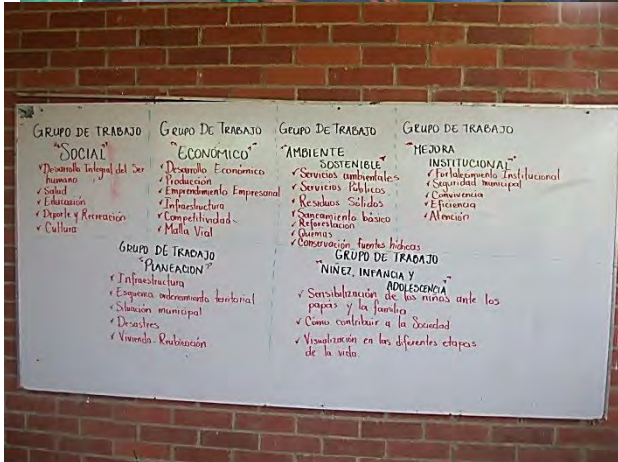 GRUPO DE TRABAJO
"SOCIAL"
✓ Desarrollo Integral del Ser
humano
✓ Salud
✓ Educación
✓ Deporte y Recreación
✓ Cultura
GRUPO DE TRABAJO
"ECONÓMICO"
✓ Desarrollo Económico
✓ Producción
✓ Emprendimiento Empresarial
✓ Infraestructura
✓ Competitividad
✓ Malla Vial
GRUPO DE TRABAJO
"AMBIENTE
SOSTENIBLE"
✓ Servicios ambientales
✓ Servicios Públicos
✓ Residuos Sólidos
✓ Saneamiento básico
✓ Reforestación
✓ Quemas
✓ Conservación fuentes hídricas
GRUPO DE TRABAJO
"MEJORA
INSTITUCIONAL"
✓ Fortalecimiento Institucional
✓ Seguridad municipal
✓ Convivencia
✓ Eficiencia
✓ Atención
GRUPO DE TRABAJO
"PLANEACION"
✓ Infraestructura
✓ Esquema ordenamiento territorial
✓ Situación municipal
✓ Desastres
✓ Vivienda - Reubicación
GRUPO DE TRABAJO
"NIÑEZ, INFANCIA Y
ADOLESCENCIA"
✓ Sensibilización de los niños ante los
papás y la familia
✓ Cómo contribuir a la Sociedad
✓ Visualización en las diferentes etapas
de la vida.